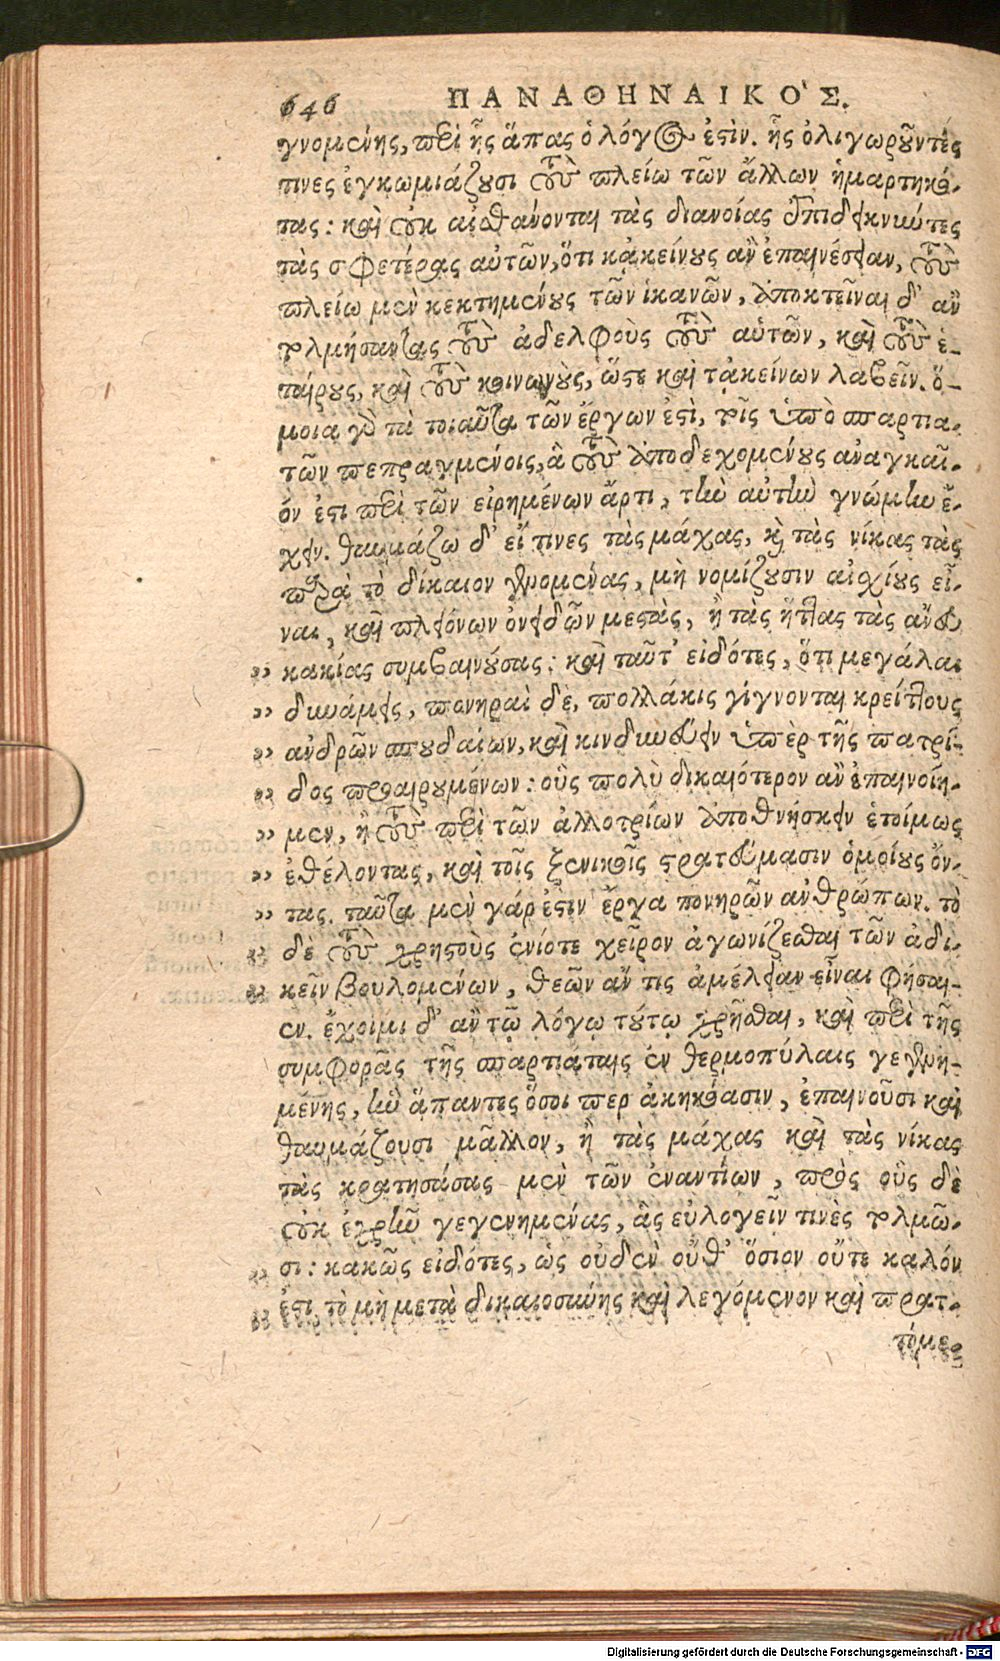 646 ΠΑΝΑΘΗΝΑΙΚΟ'Σ.
γνομένης, περὶ ἧς ἅπας ὁ λόγος ἐστὶν. ἧς ὀλιγωροῦντές
τινες ἐγκωμιάζουσι τοὺς πλείω τῶν ἄλλων ἡμαρτηκό-
τας: καὶ οὐκ αἰσθάνονται τὰς διανοίας ἐπιδεικνύντες
τὰς σφετέρας αὐτῶν, ὅτι κἀκείνους ἂν ἐπαινέσειαν, τοὺς
πλείω μὲν κεκτημένους τῶν ἱκανῶν, ἀποκτεῖναι δ' ἂν
τολμήσαντας τοὺς ἀδελφοὺς τοὺς αὑτῶν, καὶ τοὺς ἑ-
ταίρους, καὶ τοὺς κοινωνοὺς, ὥστε καὶ τἀκείνων λαβεῖν. ὅ-
μοια γὰρ τὰ τοιαῦτα τῶν ἔργων ἐστὶ, τοῖς ὑπὸ σπαρτια-
τῶν πεπραγμένοις, ἃ τοὺς ἀποδεχομένους ἀναγκαῖ-
όν ἐστι περὶ τῶν εἰρημένων ἄρτι, τὴν αὐτὴν γνώμην ἔ-
χειν. θαυμάζω δ' εἴ τινες τὰς μάχας, καὶ τὰς νίκας τὰς
παρὰ τὸ δίκαιον γενομένας, μὴ νομίζουσιν αἰσχίους εἶ-
ναι, καὶ πλειόνων ὀνειδῶν μεστὰς, ἢ τὰς ἥττας τὰς ἄνευ
” κακίας συμβαινούσας: καὶ ταῦτ' εἰδότες, ὅτι μεγάλαι
” δυνάμεις, πονηραὶ δὲ, πολλάκις γίγνονται κρείττους
” ἀνδρῶν σπουδαίων, καὶ κινδυνεύειν ὑπὲρ τῆς πατρί-
” δος προαιρουμένων: οὓς πολὺ δικαιότερον ἂν ἐπαινοίη-
” μεν, ἢ τοὺς περὶ τῶν ἀλλοτρίων ἀποθνήσκειν ἑτοίμως
” ἐθέλοντας, καὶ τοῖς ξενικοῖς στρατεύμασιν ὁμοίους ὄν-
” τας. ταῦτα μὲν γάρ ἐστιν ἔργα πονηρῶν ἀνθρώπων. τὸ
” δὲ τοὺς χρηστοὺς ἐνίοτε χεῖρον ἀγωνίζεσθαι τῶν ἀδι-
” κεῖν βουλομένων, θεῶν ἄν τις ἀμέλειαν εἶναι φήσαι-
εν. ἔχοιμι δ' ἂν τῷ λόγῳ τούτῳ χρῆσθαι, καὶ περὶ τῆς
συμφορᾶς τῆς σπαρτιάταις ἐν θερμοπύλαις γεγενη-
μένης, ἣν ἅπαντες ὅσοι περ ἀκηκόασιν, ἐπαινοῦσι καὶ
θαυμάζουσι μᾶλλον, ἢ τὰς μάχας καὶ τὰς νίκας
τὰς κρατησάσας μὲν τῶν ἐναντίων, πρὸς οὓς δὲ
οὐκ ἐχρῆν γεγενημένας, ἃς εὐλογεῖν τινὲς τολμῶ-
” σι: κακῶς εἰδότες, ὡς οὐδὲν οὔθ' ὅσιον οὔτε καλόν
” ἐστι τὸ μὴ μετὰ δικαιοσύνης καὶ λεγόμενον καὶ πρατ-
τόμε
Digitalisierung gefördert durch die Deutsche Forschungsgemeinschaft - DFG